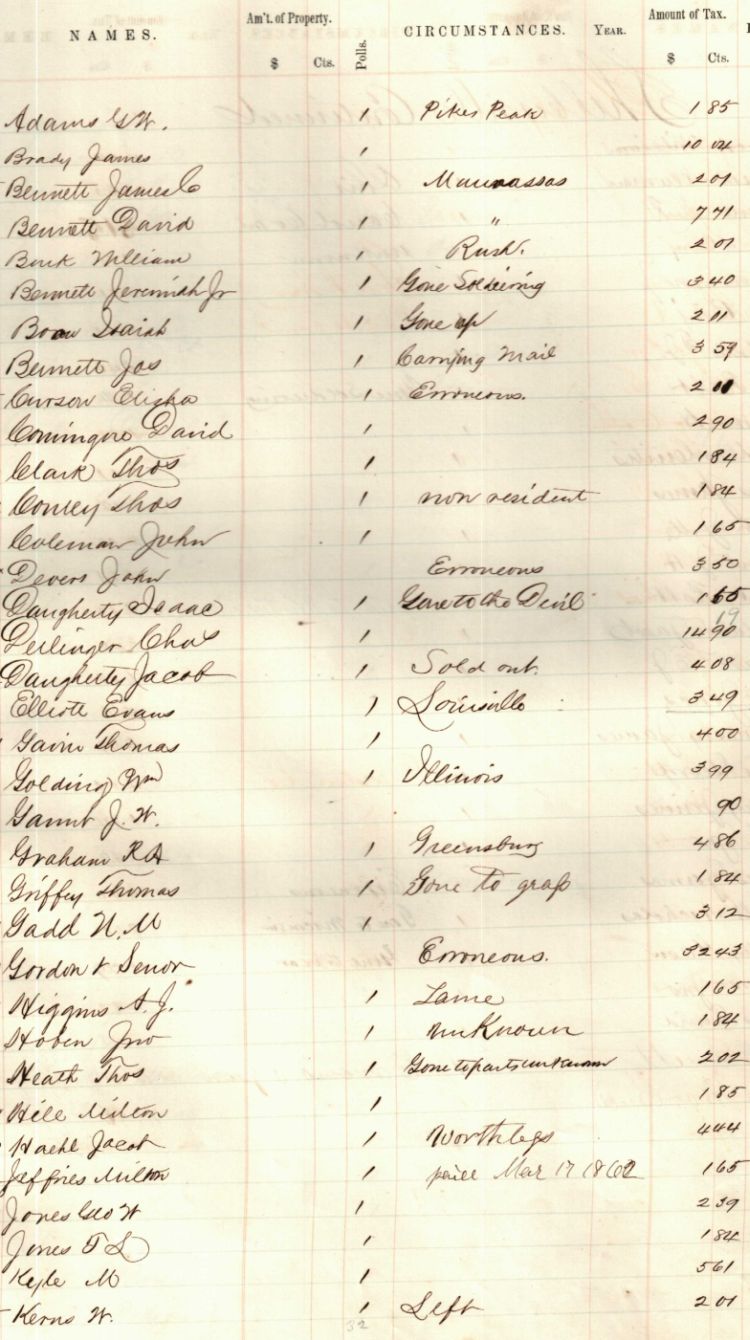 NAMES. Am't. of Property. $ Cts. Polls. CIRCUMSTANCES. YEAR. Amount of Tax. $ Cts.
Adams G W. 1 Pikes Peak 1 85
Brady James 1 10 04
Bennett James C 1 Manassas 2 01
Bennett David 1 " 7 71
William 1 Rush. 2 01
Bennett Jeremiah Jr 1 Gone Soldiering 3 40
Isaiah 1 Gone up 2 11
Bennett Jos 1 Carrying Mail 3 59
Curson Elisha 1 Erroneous. 2
Comingore David 1 2 90
Clark Thos 1 1 84
Conley Thos 1 non resident 1 84
Coleman John 1 1 65
Devers John Erroneous 3 50
Daugherty Isaac 1 Gone to the Devil 1 65
Deilinger Chas 1 14 90
Daugherty Jacob 1 Sold out. 4 08
Elliott Evans 1 Louisville 3 49
Gavin Thomas 1 4 00
Golding Wm 1 Illinois 3 99
Gaunt J. W. 90
Graham R A 1 Greensburg 4 86
Griffey Thomas 1 Gone to grass 1 84
Gadd N. M 1 3 12
Gordon & Senor Erroneous. 32 43
Higgins A. J. 1 Lame 1 65
Hoben Jno 1 unKnown 1 84
Heath Thos 1 Gone to parts unknown 2 02
Hill Milton 1 1 85
Haehl Jacob 1 Worthless 4 44
Jeffries Milton 1 paid Mar 17 1862 1 65
Jones Geo W 1 2 39
Jones T L 1 1 84
Kyle M 1 5 61
Kerns W. 1 Left 2 01
32